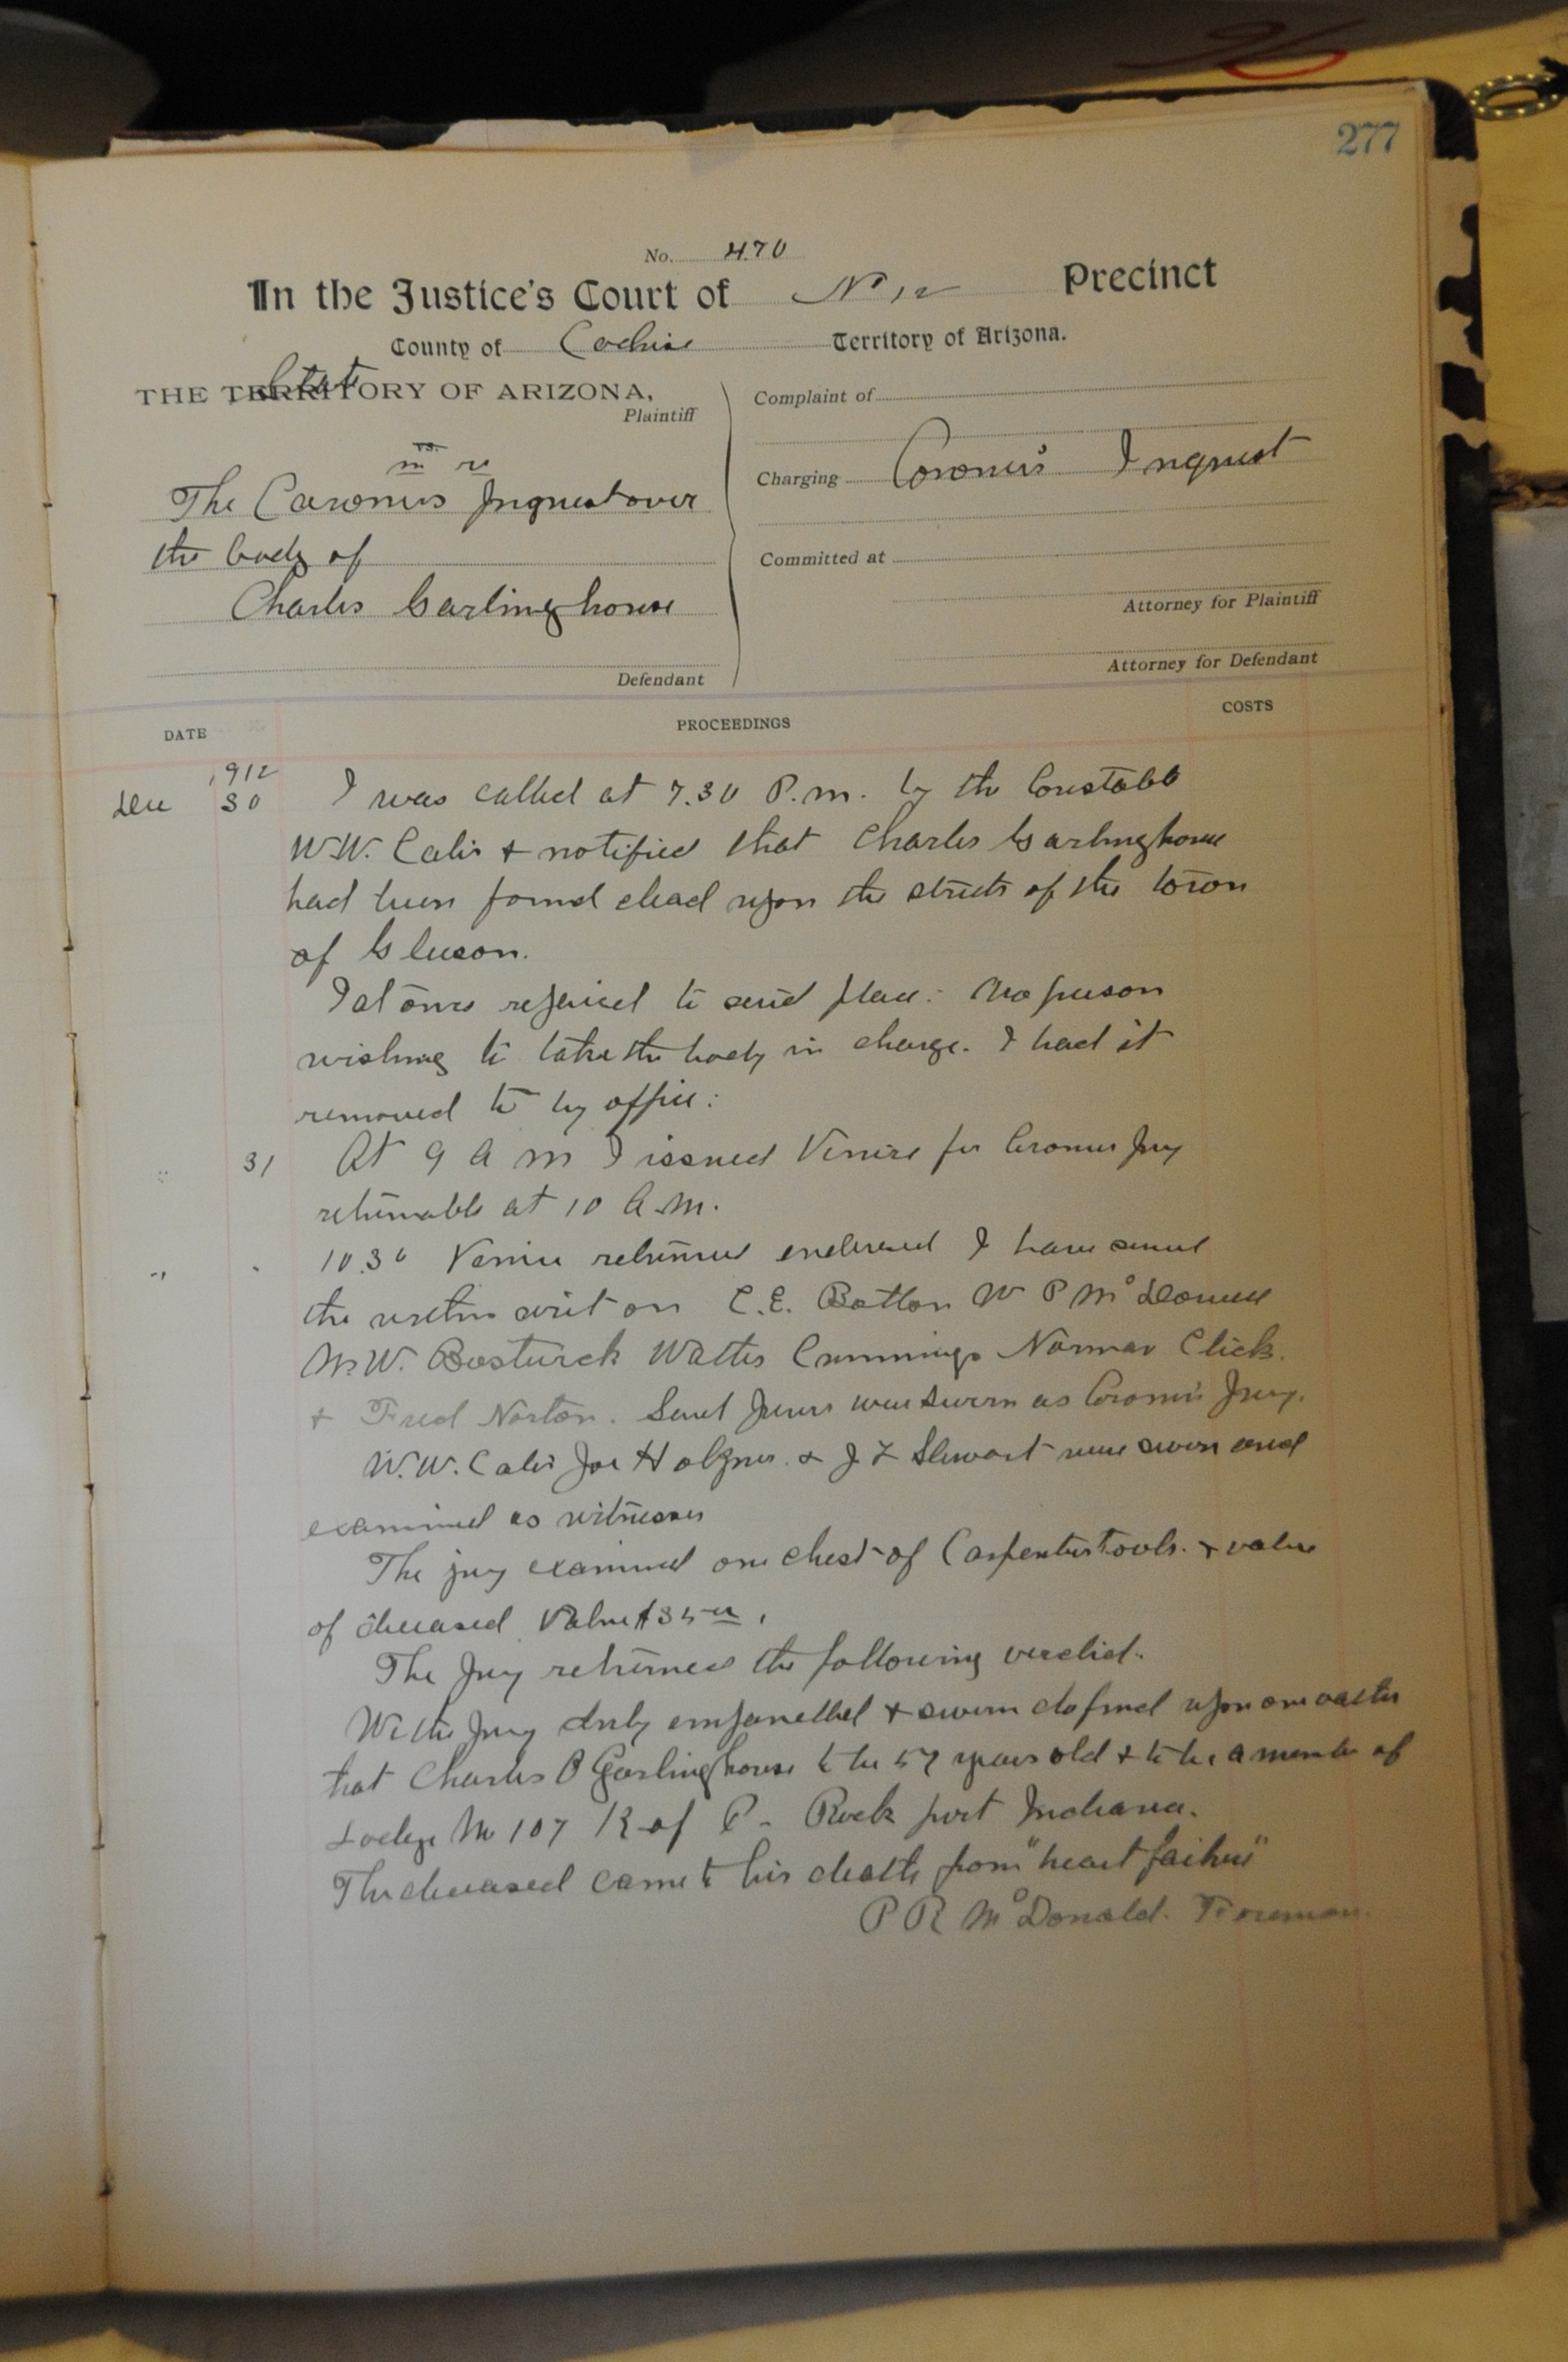 277
No. 470
In the Justice's Court of No 12 Precinct
County of Cochise Territory of Arizona.
State
THE TERRITORY OF ARIZONA,
Plaintiff
vs.
in re
The Coroners Inquest over
the body of
Charles Garlinghouse
Defendant
Complaint of
Charging Coroner's Inquest
Committed at
Attorney for Plaintiff
Attorney for Defendant
DATE PROCEEDINGS COSTS
1912
Dec 30 I was called at 7.30 P.m. by the Constable
W.W. & notified that Charles Garlinghouse
had been found dead upon the streets of the town
of Gleeson.
I at once repaired to said place: No person
wishing to take the body in charge. I had it
removed to by office:
31 At 9 A m I issued Venire for Coroners Jury
returnable at 10 A.M.
10.30 Venire returned endorsed I have served
the within writ on C.E. Batton W P McDonell
W. Bostwick Walter Cummings Norman Click.
& Fred Norton. Said Jurors were sworn as Coroners Jury.
W.W. Joe & J F Stewart were sworn and
examined as witnesses
The jury examined one chest of Carpenters tools. & value
of deceased Value $35
The Jury returned the following verdict.
We the Jury duly empanelled & sworn do find upon our oaths
that Charles B Garlinghouse to be 57 years old & to be a member of
Lodge No 107 K of P - Rock port Indiana.
The deceased came to his death from "heart failure"
P R McDonald. Foreman.